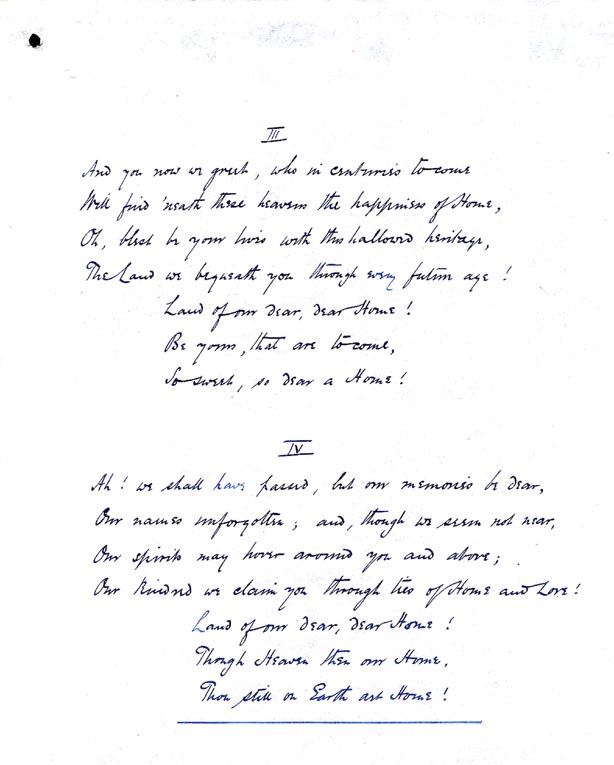 III
And you now we greet, who in centuries to come
Will find 'neath these heavens the happiness of Home,
Oh, blest be your lives with this hallowed heritage,
The Land we bequeath you through every future age!
Land of our dear, dear Home!
Be yours, that are to come,
So sweet, so dear a Home!
IV
Ah! we shall have passed, but our memories be dear,
Our names unforgotten; and, though we seem not near,
Our spirits may hover around you and above;
Our Kindred we claim you through ties of Home and Love!
Land of our dear, dear Home!
Though Heaven then our Home,
Thou still on Earth art Home!